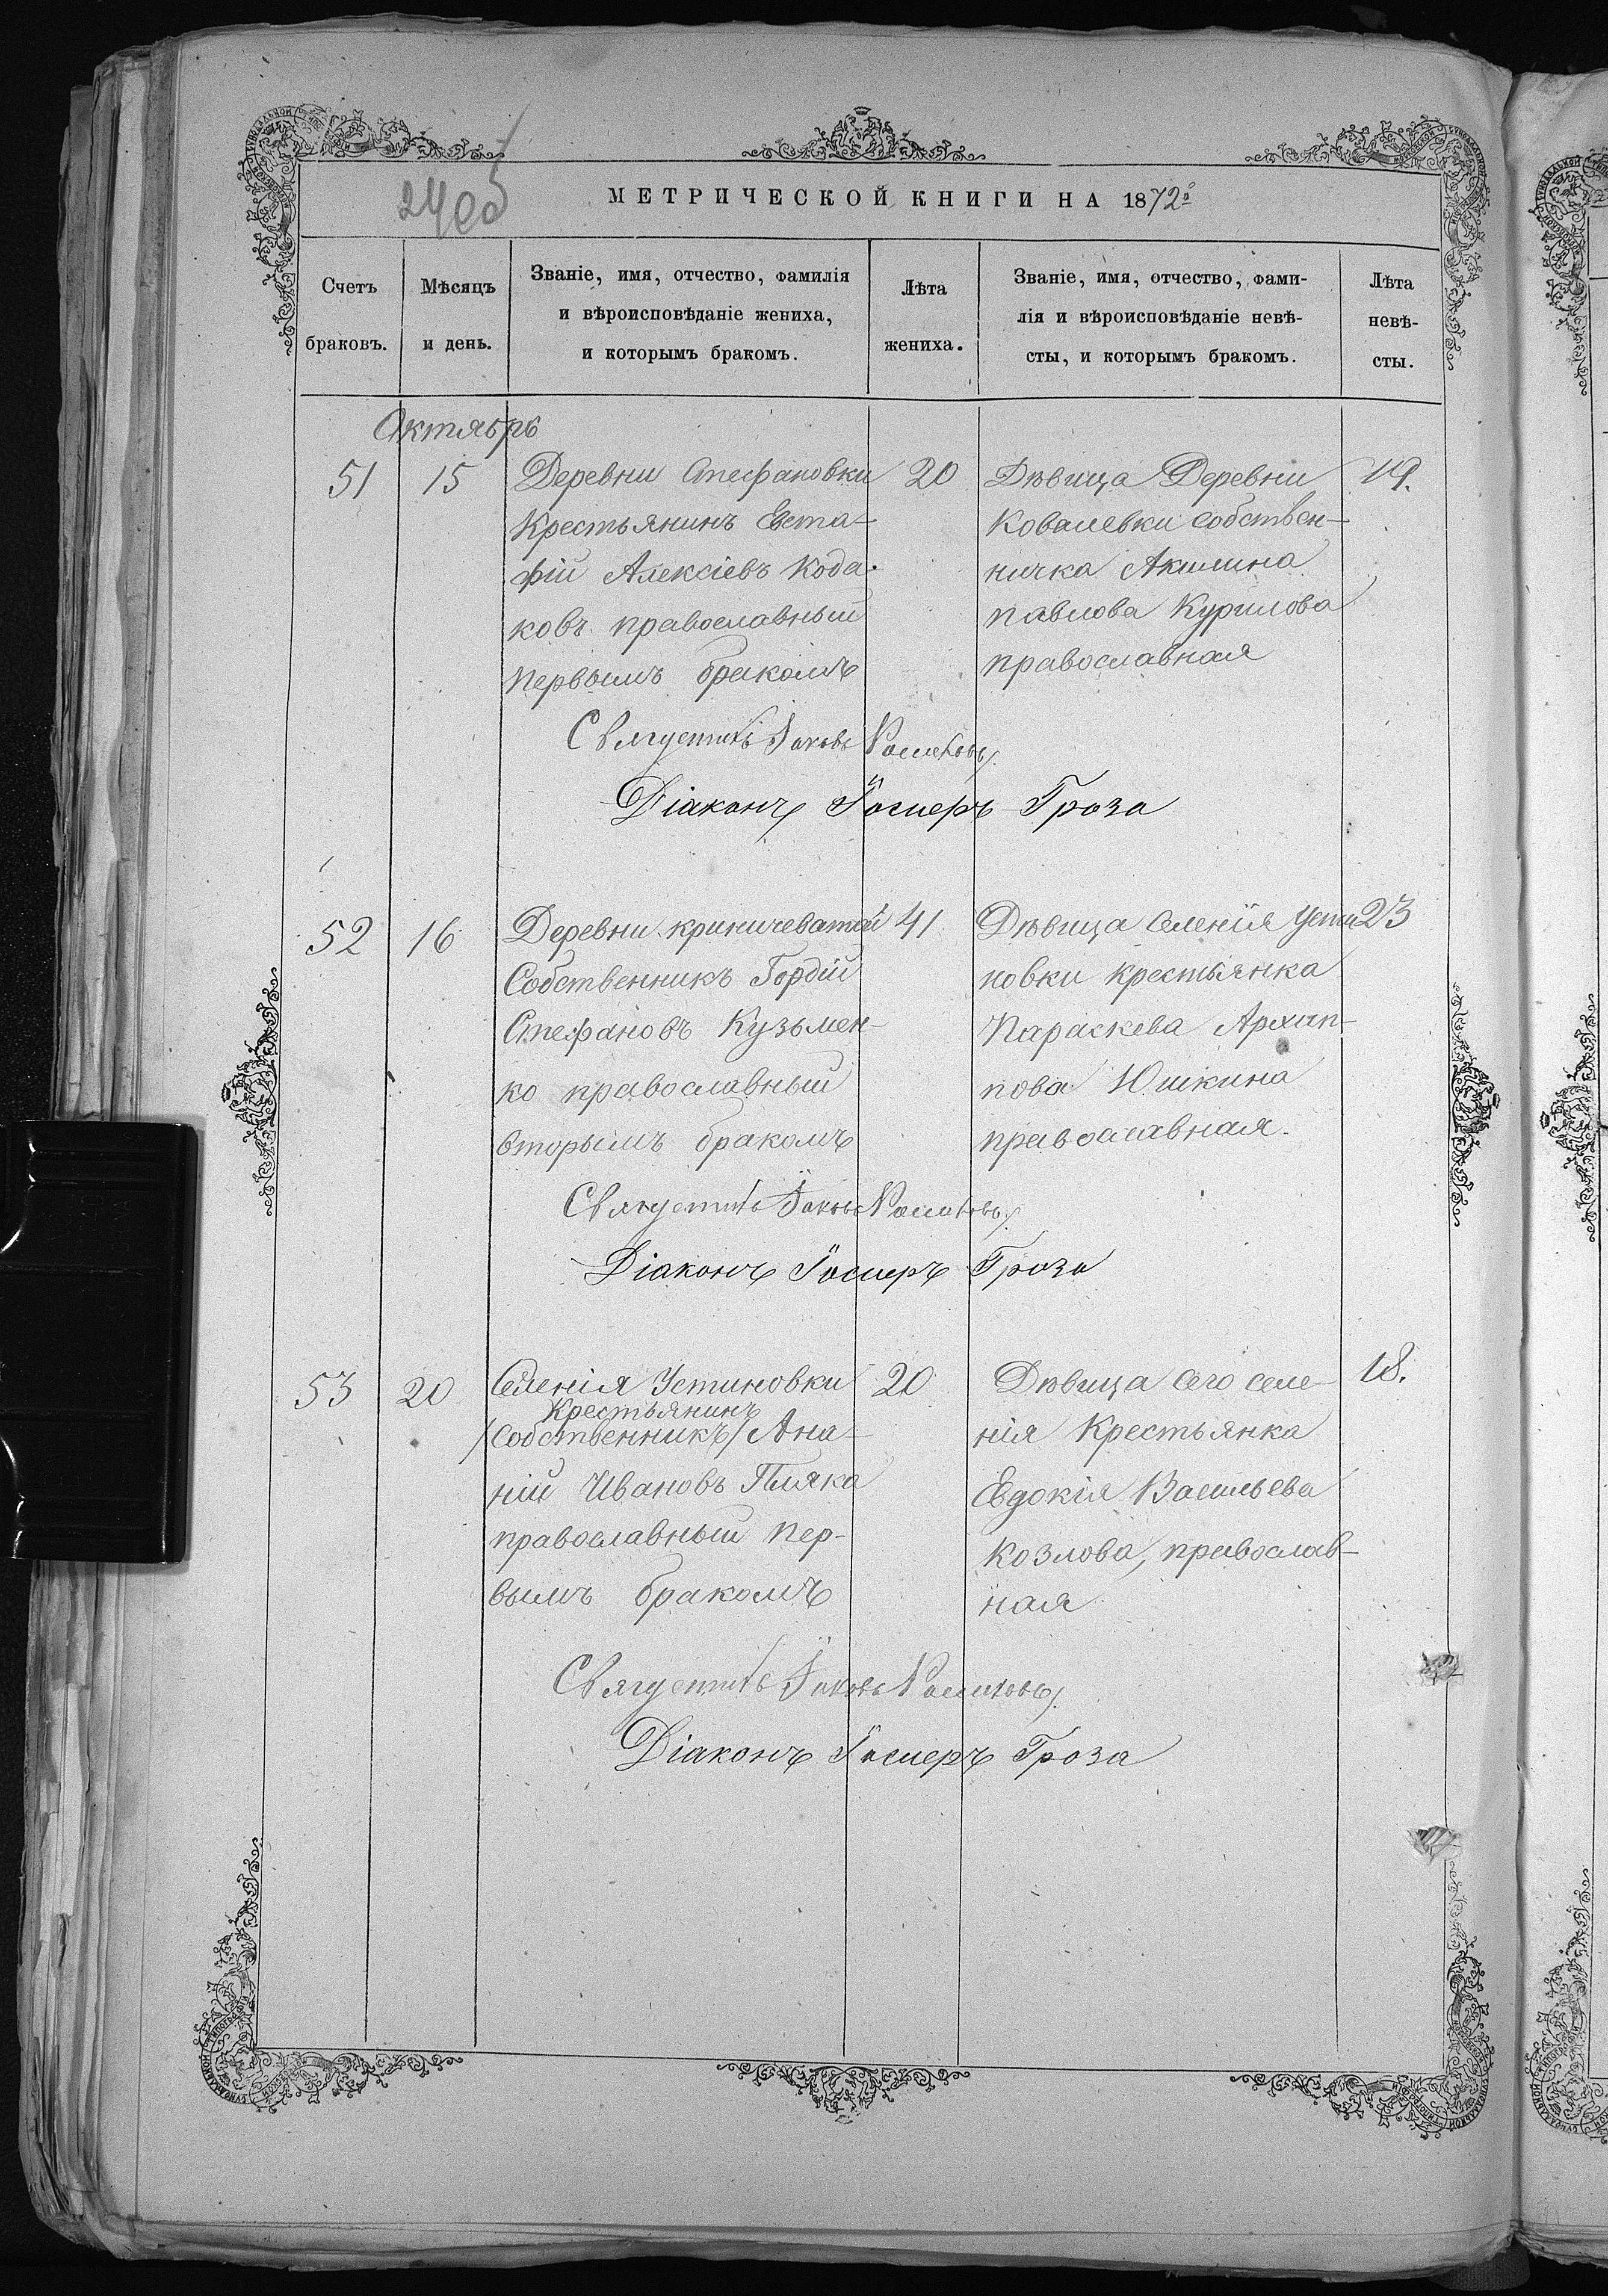 МЕТРИЧЕСКОЙ КНИГИ НА 1872й
Счетъ браковъ.
Мѣсяцъ и день.
Званіе, имя, отчество, фамилія
и вѣроисповѣданіе жениха,
и которымъ бракомъ.
Лѣта жениха.
Званіе, имя, отчество, фами-
лія и вѣроисповѣданіе невѣ-
сты, и которымъ бракомъ.
Лѣта невѣ-
сты.
Октябрь
51 15
Деревни Стефановки
Крестьянинъ Евста-
фій Алексіевъ Кода-
ковъ православный
первымъ бракомъ
20
Дѣвица Деревни
Ковалевки собствен-
ничка Акилина
Павлова Курилова
православная
19.
Іаковъ
Діаконъ Гроза
52 16
Деревни Криничеватой
Собственникъ Гордій
Стефановъ Кузьмен-
ко православный
вторымъ бракомъ
41
Дѣвица Селенія Усти
новки крестьянка
Параскева Архип-
пова Юшкина
православная.
23
Іаковъ
Діаконъ Гроза
53 20
Селенія Устиновки
Крестьянинъ
/Собственникъ/ Ана-
ній Ивановъ Пляка
православный пер-
вымъ бракомъ
20
Дѣвица сего селе-
нія Крестьянка
Евдокія Васильева
Козлова, православ-
ная
18.
Іаковъ
Діаконъ Гроза